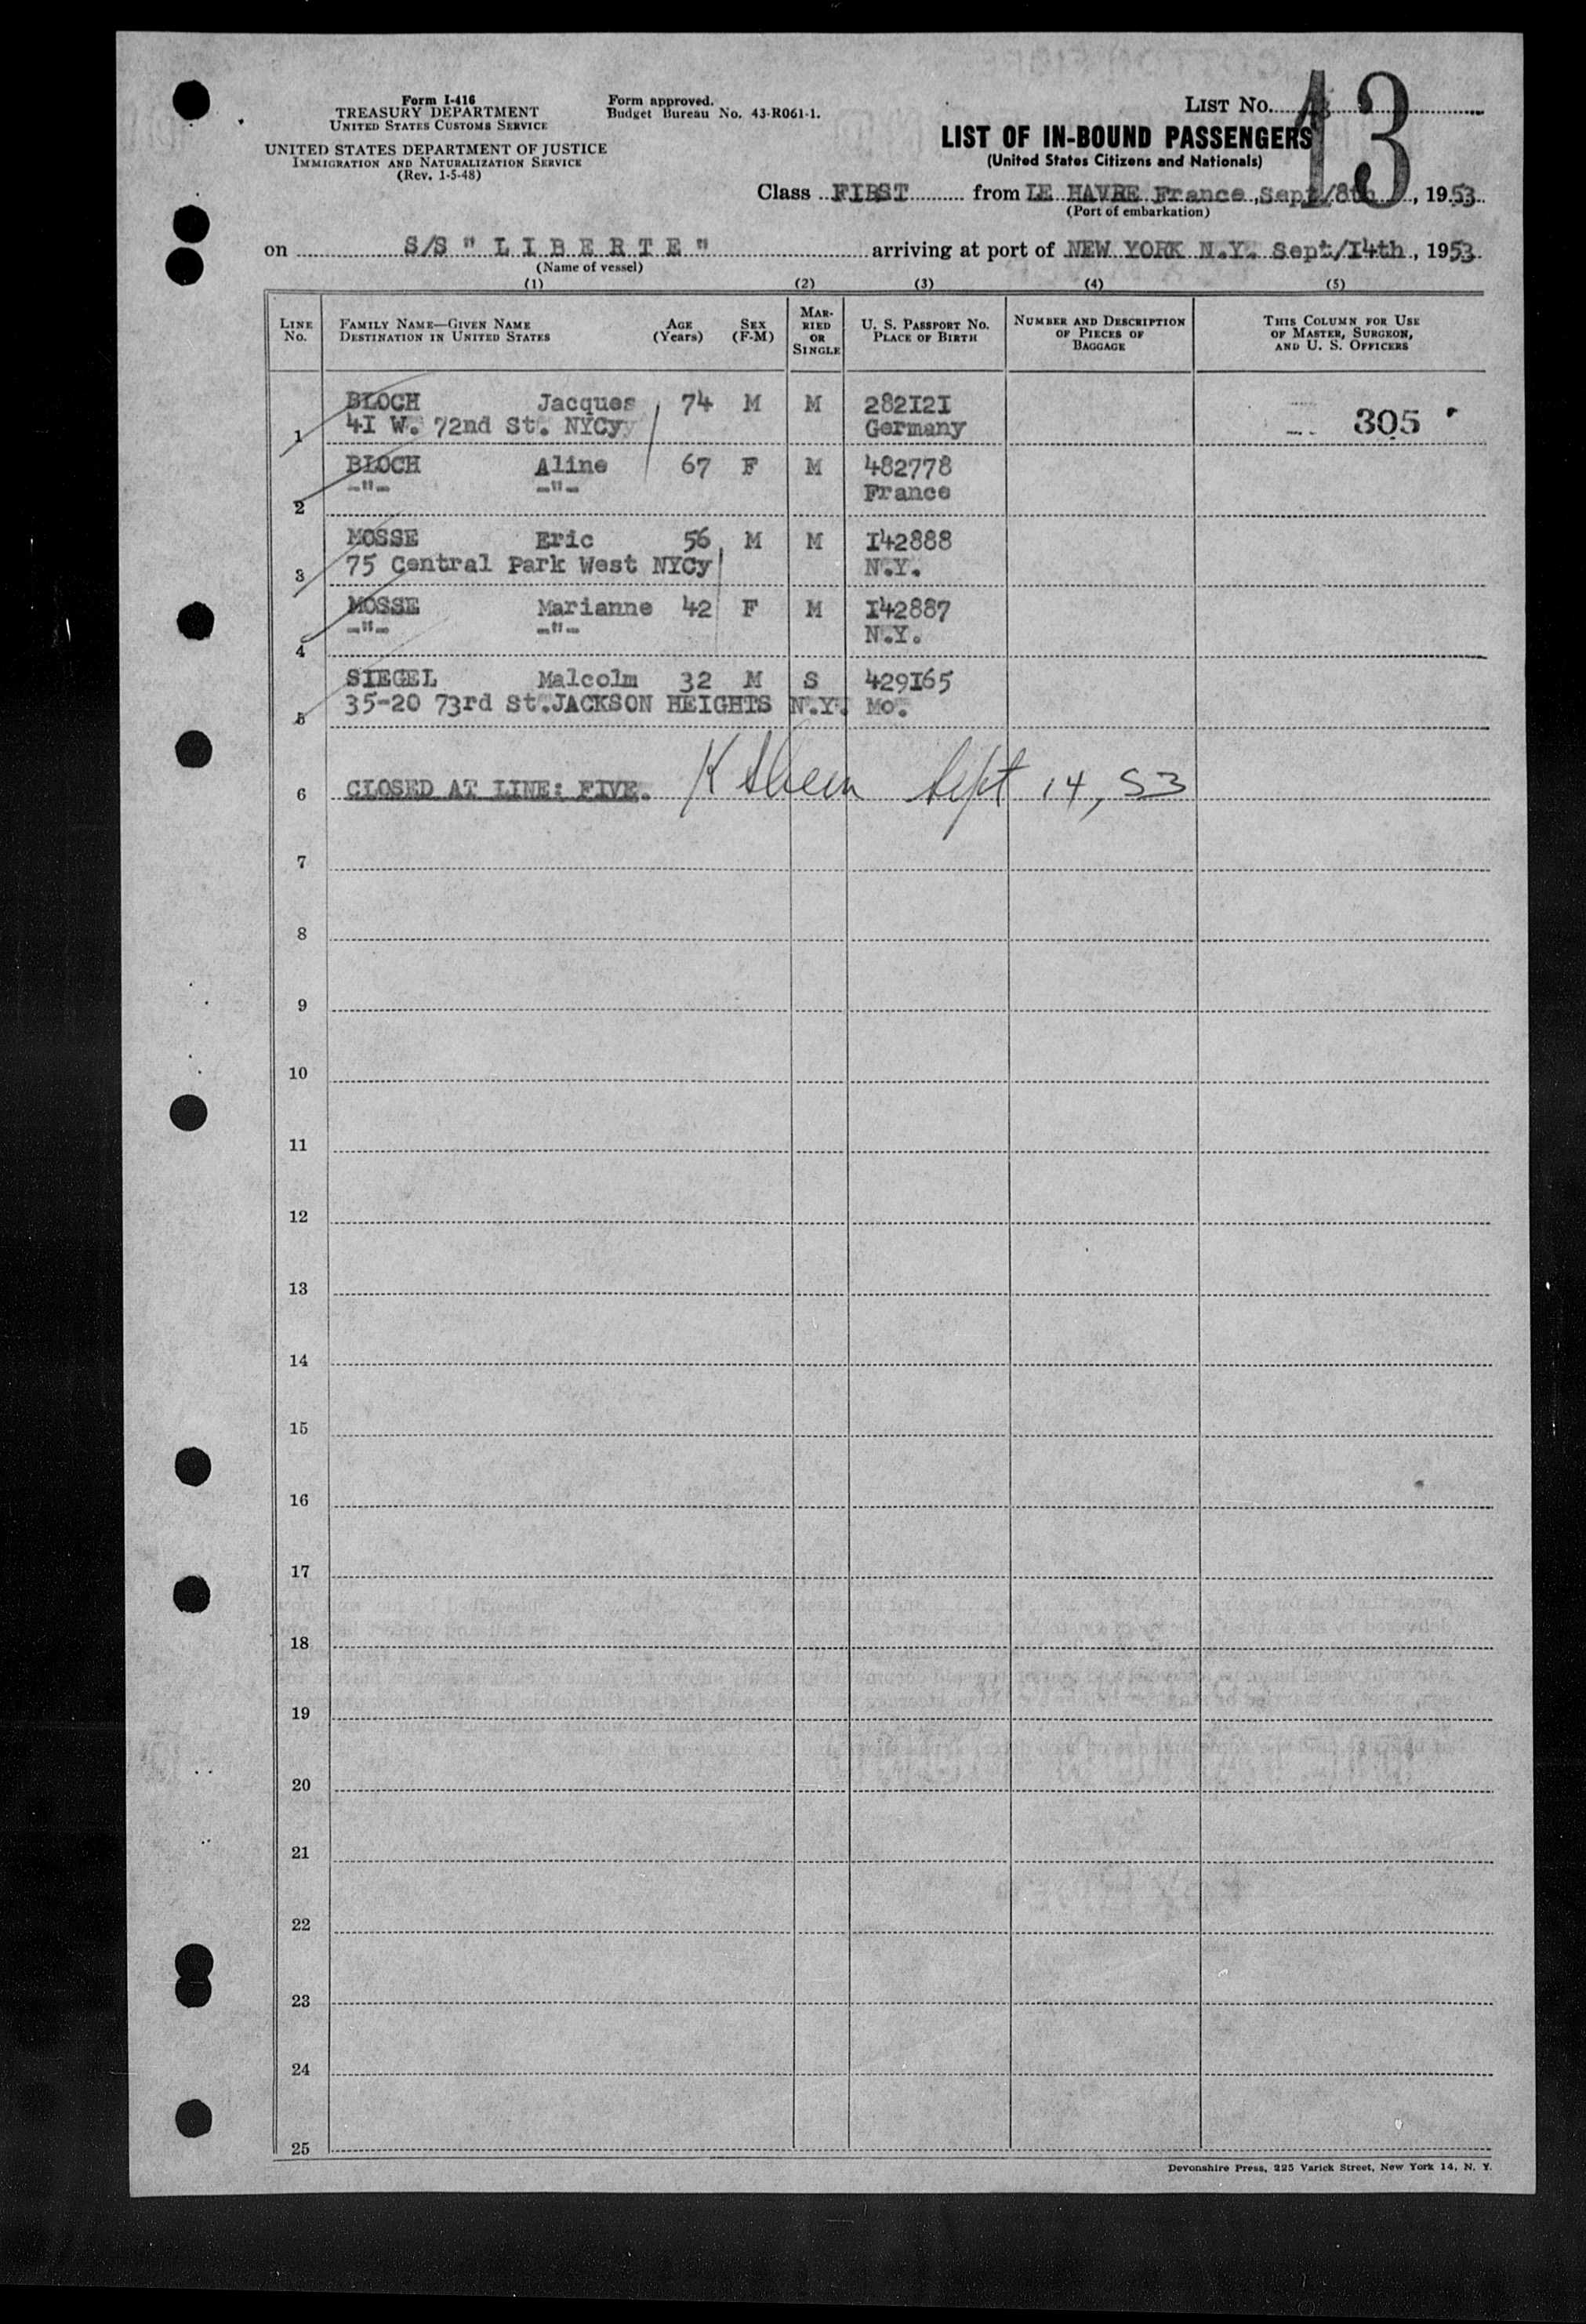 Form I-416
TREASURY DEPARTMENT
UNITED STATES CUSTOMS SERVICE
UNITED STATES DEPARTMENT OF JUSTICE
IMMIGRATION AND NATURALIZATION SERVICE
(Rev. 1-5-48)
Form approved.
Budget Bureau No. 43-R061-1.
LIST NO. 13
LIST OF IN-BOUND PASSENGERS
(United States Citizens and Nationals)
Class FIRST from LE HAVRE France, Sept/8th, 1953
(Port of embarkation)
on S/S " L I B E R T E " arriving at port of NEW YORK N.Y. Sept/I4th, 1953
(Name of vessel)
(1) (2) (3) (4) (5)
LINE NO. FAMILY NAME—GIVEN NAME DESTINATION IN UNITED STATES AGE (Years) SEX (F-M) MARRIED OR SINGLE U. S. PASSPORT NO. PLACE OF BIRTH NUMBER AND DESCRIPTION OF PIECES OF BAGGAGE THIS COLUMN FOR USE OF MASTER, SURGEON, AND U. S. OFFICERS
BLOCH Jacques 74 M M 282I2I
1 4I W. 72nd St. NYCy Germany 305
BLOCH Aline 67 F M 482778
2 -"- -"- France
MOSSE Eric 56 M M I42888
3 75 Central Park West NYCy N.Y.
MOSSE Marianne 42 F M I42887
4 -"- -"- N.Y.
SIEGEL Malcolm 32 M S 429I65
5 35-20 73rd St.JACKSON HEIGHTS N.Y. Mo.
6 CLOSED AT LINE: FIVE. Sept 14, 53
7
8
9
10
11
12
13
14
15
16
17
18
19
20
21
22
23
24
25
Devonshire Press, 225 Varick Street, New York 14, N. Y.